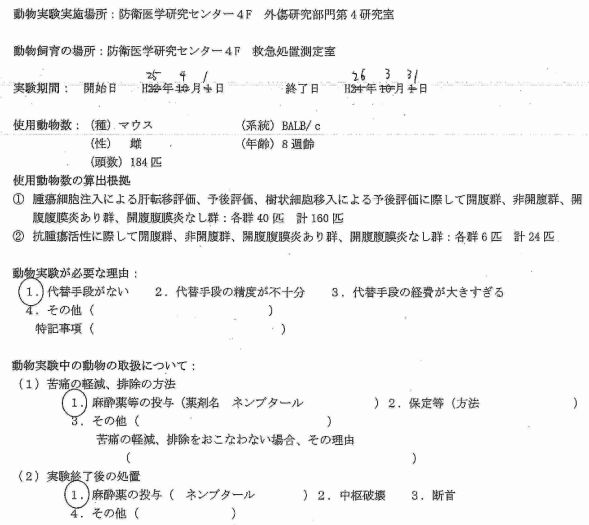 動物実験実施場所：防衛医学研究センター４F　外傷研究部門第４研究室
動物飼育の場所：防衛医学研究センター４F　救急処置測定室
25　4　1　26　3　31
実験期間：　開始日　H22年10月1日　終了日　H24年10月1日
使用動物数：（種）マウス　（系統）BALB/c
（性）　雌　（年齢）８週齢
（頭数）184匹
使用動物数の算出根拠
①　腫瘍細胞注入による肝転移評価、予後評価、樹状細胞移入による予後評価に際して開腹群、非開腹群、開
腹腹膜炎あり群、開腹腹膜炎なし群：各群40匹　計160匹
②　抗腫瘍活性に際して開腹群、非開腹群、開腹腹膜炎あり群、開腹腹膜炎なし群：各群６匹　計24匹
動物実験が必要な理由：
１．代替手段がない　２．代替手段の精度が不十分　３．代替手段の経費が大きすぎる
４．その他（　）
特記事項（　）
動物実験中の動物の取扱について：
（１）苦痛の軽減、排除の方法
１．麻酔薬等の投与（薬剤名　ネンブタール　）２．保定等（方法　）
３．その他（　）
苦痛の軽減、排除をおこなわない場合、その理由
（　）
（２）実験終了後の処置
１．麻酔薬の投与（　ネンブタール　）２．中枢破壊　３．断首
４．その他（　）